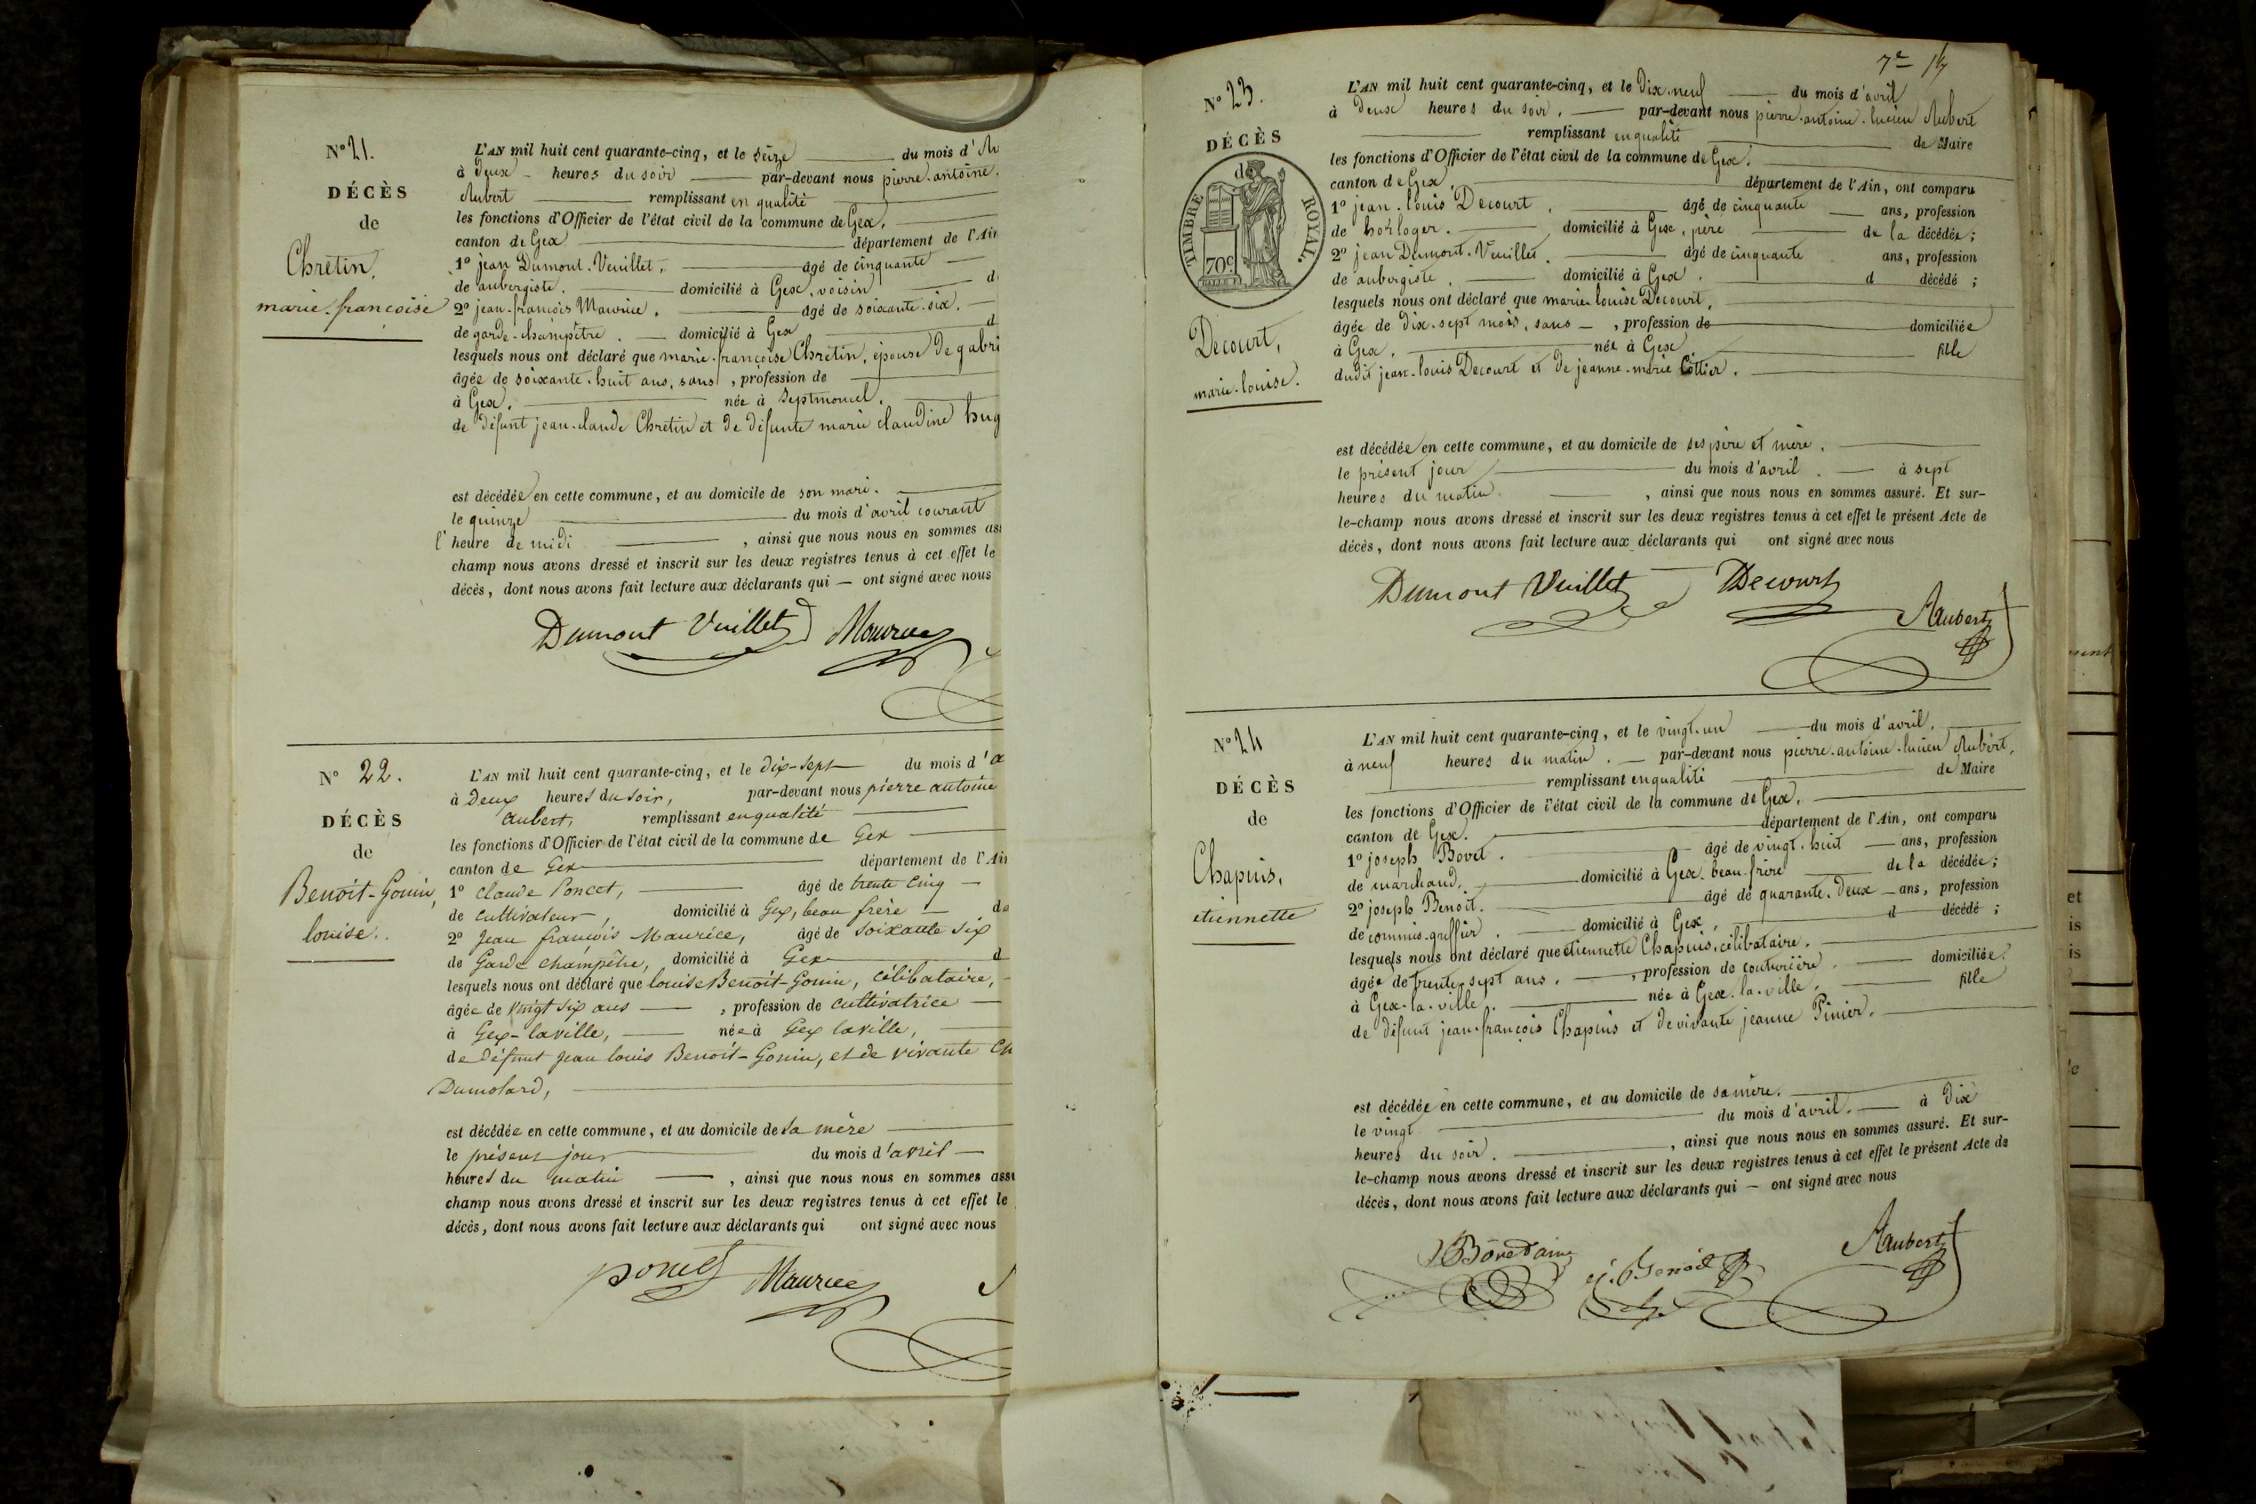 N° 21.
DÉCÈS
de
Chrétin,
marie-françoise
L'AN mil huit cent quarante-cinq, et le seize du mois d'
à deux heures du soir par-devant nous pierre-antoine
Aubert remplissant en qualité
les fonctions d'Officier de l'état civil de la commune de Gex,
canton de Gex département de l'Ain
1° jean Dumont-Vuillet, âgé de cinquante
de aubergiste. domicilié à Gex, voisin d
2° jean-françois Maurice. âgé de soixante-six.
de garde-champêtre. domicilié à Gex d
lesquels nous ont déclaré que marie-françoise Chrétin, épouse de gabri
âgée de soixante-huit ans, sans, profession de
à Gex. née à Septmoncel.
de défunt jean-claude Chrétin et de défunte marie claudine hug
est décédée en cette commune, et au domicile de son mari.
le quinze du mois d'avril courant
l'heure de midi, ainsi que nous nous en sommes ass
champ nous avons dressé et inscrit sur les deux registres tenus à cet effet le
décès, dont nous avons fait lecture aux déclarants qui — ont signé avec nous
Dumont Vuillet Maurice
N° 22.
DÉCÈS
de
Benoit-Gonin,
louise.
L'AN mil huit cent quarante-cinq, et le dix-sept du mois d'a
à deux heures du soir, par-devant nous pierre antoine
aubert, remplissant en qualité
les fonctions d'Officier de l'état civil de la commune de Gex
canton de Gex département de l'Ain
1° Claude Poncet, âgé de trente cinq
de cultivateur, domicilié à Gex, beau frère de
2° Jean françois Maurice, âgé de soixante six
de Garde champêtre, domicilié à Gex d
lesquels nous ont déclaré que louise Benoit-Gonin, célibataire,
âgée de vingt six ans, profession de cultivatrice
à Gex-laville, née à Gex laville,
de défunt Jean louis Benoit-Gonin, et de vivante
Dumolard,
est décédée en cette commune, et au domicile de sa mère
le présent jour du mois d'avril
heures du matin, ainsi que nous nous en sommes assu
champ nous avons dressé et inscrit sur les deux registres tenus à cet effet le
décès, dont nous avons fait lecture aux déclarants qui ont signé avec nous
poncet Maurice
N° 23.
DÉCÈS
de
TIMBRE ROYAL.
70c
Decourt,
marie-louise.
L'AN mil huit cent quarante-cinq, et le dix-neuf du mois d'avril
à deux heures du soir. par-devant nous pierre-antoine-lucien Aubert
remplissant en qualité de Maire
les fonctions d'Officier de l'état civil de la commune de Gex.
canton de Gex, département de l'Ain, ont comparu
1° jean-louis Decourt, âgé de cinquante ans, profession
de horloger. domicilié à Gex, père de la décédée;
2° jean Dumont-Vuillet. âgé de cinquante ans, profession
de aubergiste. domicilié à Gex. d décédé;
lesquels nous ont déclaré que marie-louise Decourt,
âgée de dix-sept mois, sans —, profession de domiciliée
à Gex. née à Gex fille
dudit jean-louis Decourt et de jeanne-marie Cottier.
est décédée en cette commune, et au domicile de ses père et mère.
le présent jour du mois d'avril. à sept
heures du matin., ainsi que nous nous en sommes assuré. Et sur-
le-champ nous avons dressé et inscrit sur les deux registres tenus à cet effet le présent Acte de
décès, dont nous avons fait lecture aux déclarants qui ont signé avec nous
Dumont Vuillet Decourt
Aubert
N° 24
DÉCÈS
de
Chapuis,
étiennette
L'AN mil huit cent quarante-cinq, et le vingt-un du mois d'avril.
à neuf heures du matin. par-devant nous pierre-antoine-lucien Aubert,
remplissant en qualité de Maire
les fonctions d'Officier de l'état civil de la commune de Gex.
canton de Gex. département de l'Ain, ont comparu
1° joseph Bovet. âgé de vingt-huit ans, profession
de marchand. domicilié à Gex. beau-frère de la décédée;
2° joseph Benoit. âgé de quarante-deux ans, profession
de commis-greffier. domicilié à Gex, d décédé;
lesquels nous ont déclaré que étiennette Chapuis, célibataire.
âgée de trente-sept ans., profession de couturière. domiciliée
à Gex-la-ville. née à Gex-la-ville. fille
de défunt jean-françois Chapuis et de vivante jeanne Pinier.
est décédée en cette commune, et au domicile de sa mère.
le vingt du mois d'avril. à dix
heures du soir., ainsi que nous nous en sommes assuré. Et sur-
le-champ nous avons dressé et inscrit sur les deux registres tenus à cet effet le présent Acte de
décès, dont nous avons fait lecture aux déclarants qui — ont signé avec nous
j. Benoit Aubert